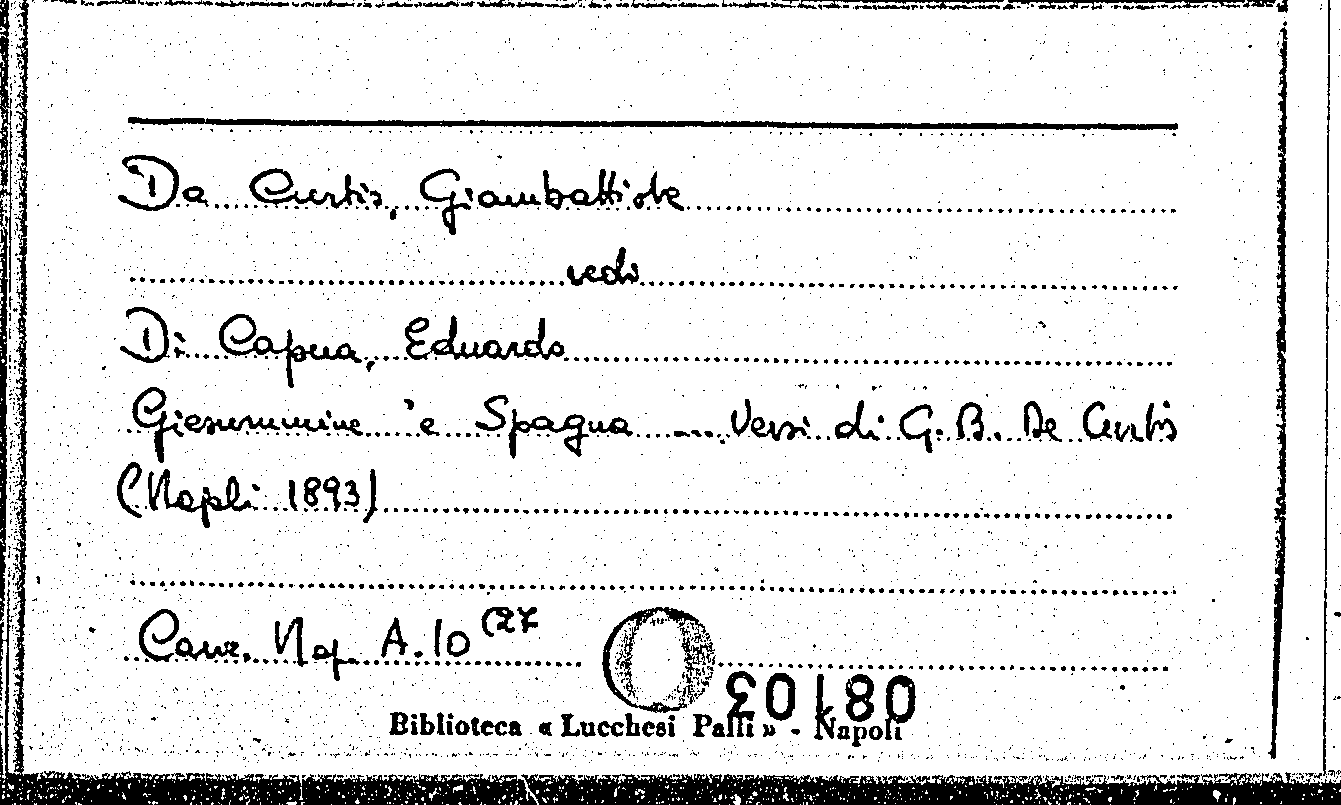 Da Curtis, Giambattista
vedi
Di Capua, Eduardo
Giesummine 'e Spagna .... Versi di G. B. De Curtis
(Napoli 1893)
Canz. Nap. A.10 (27
081803
Biblioteca « Lucchesi Palli » - Napoli